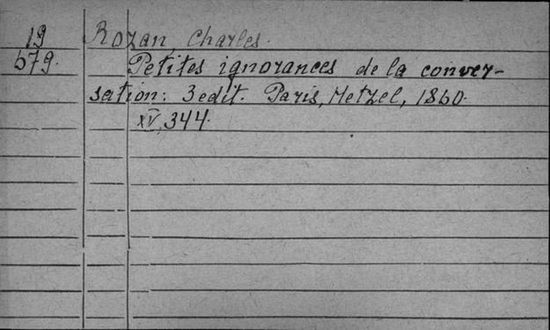 19 Rozan, Charles.
579. Petites ignorances de la conver-
sation: 3 edit. Paris, Hetzel, 1860.
XV, 344.